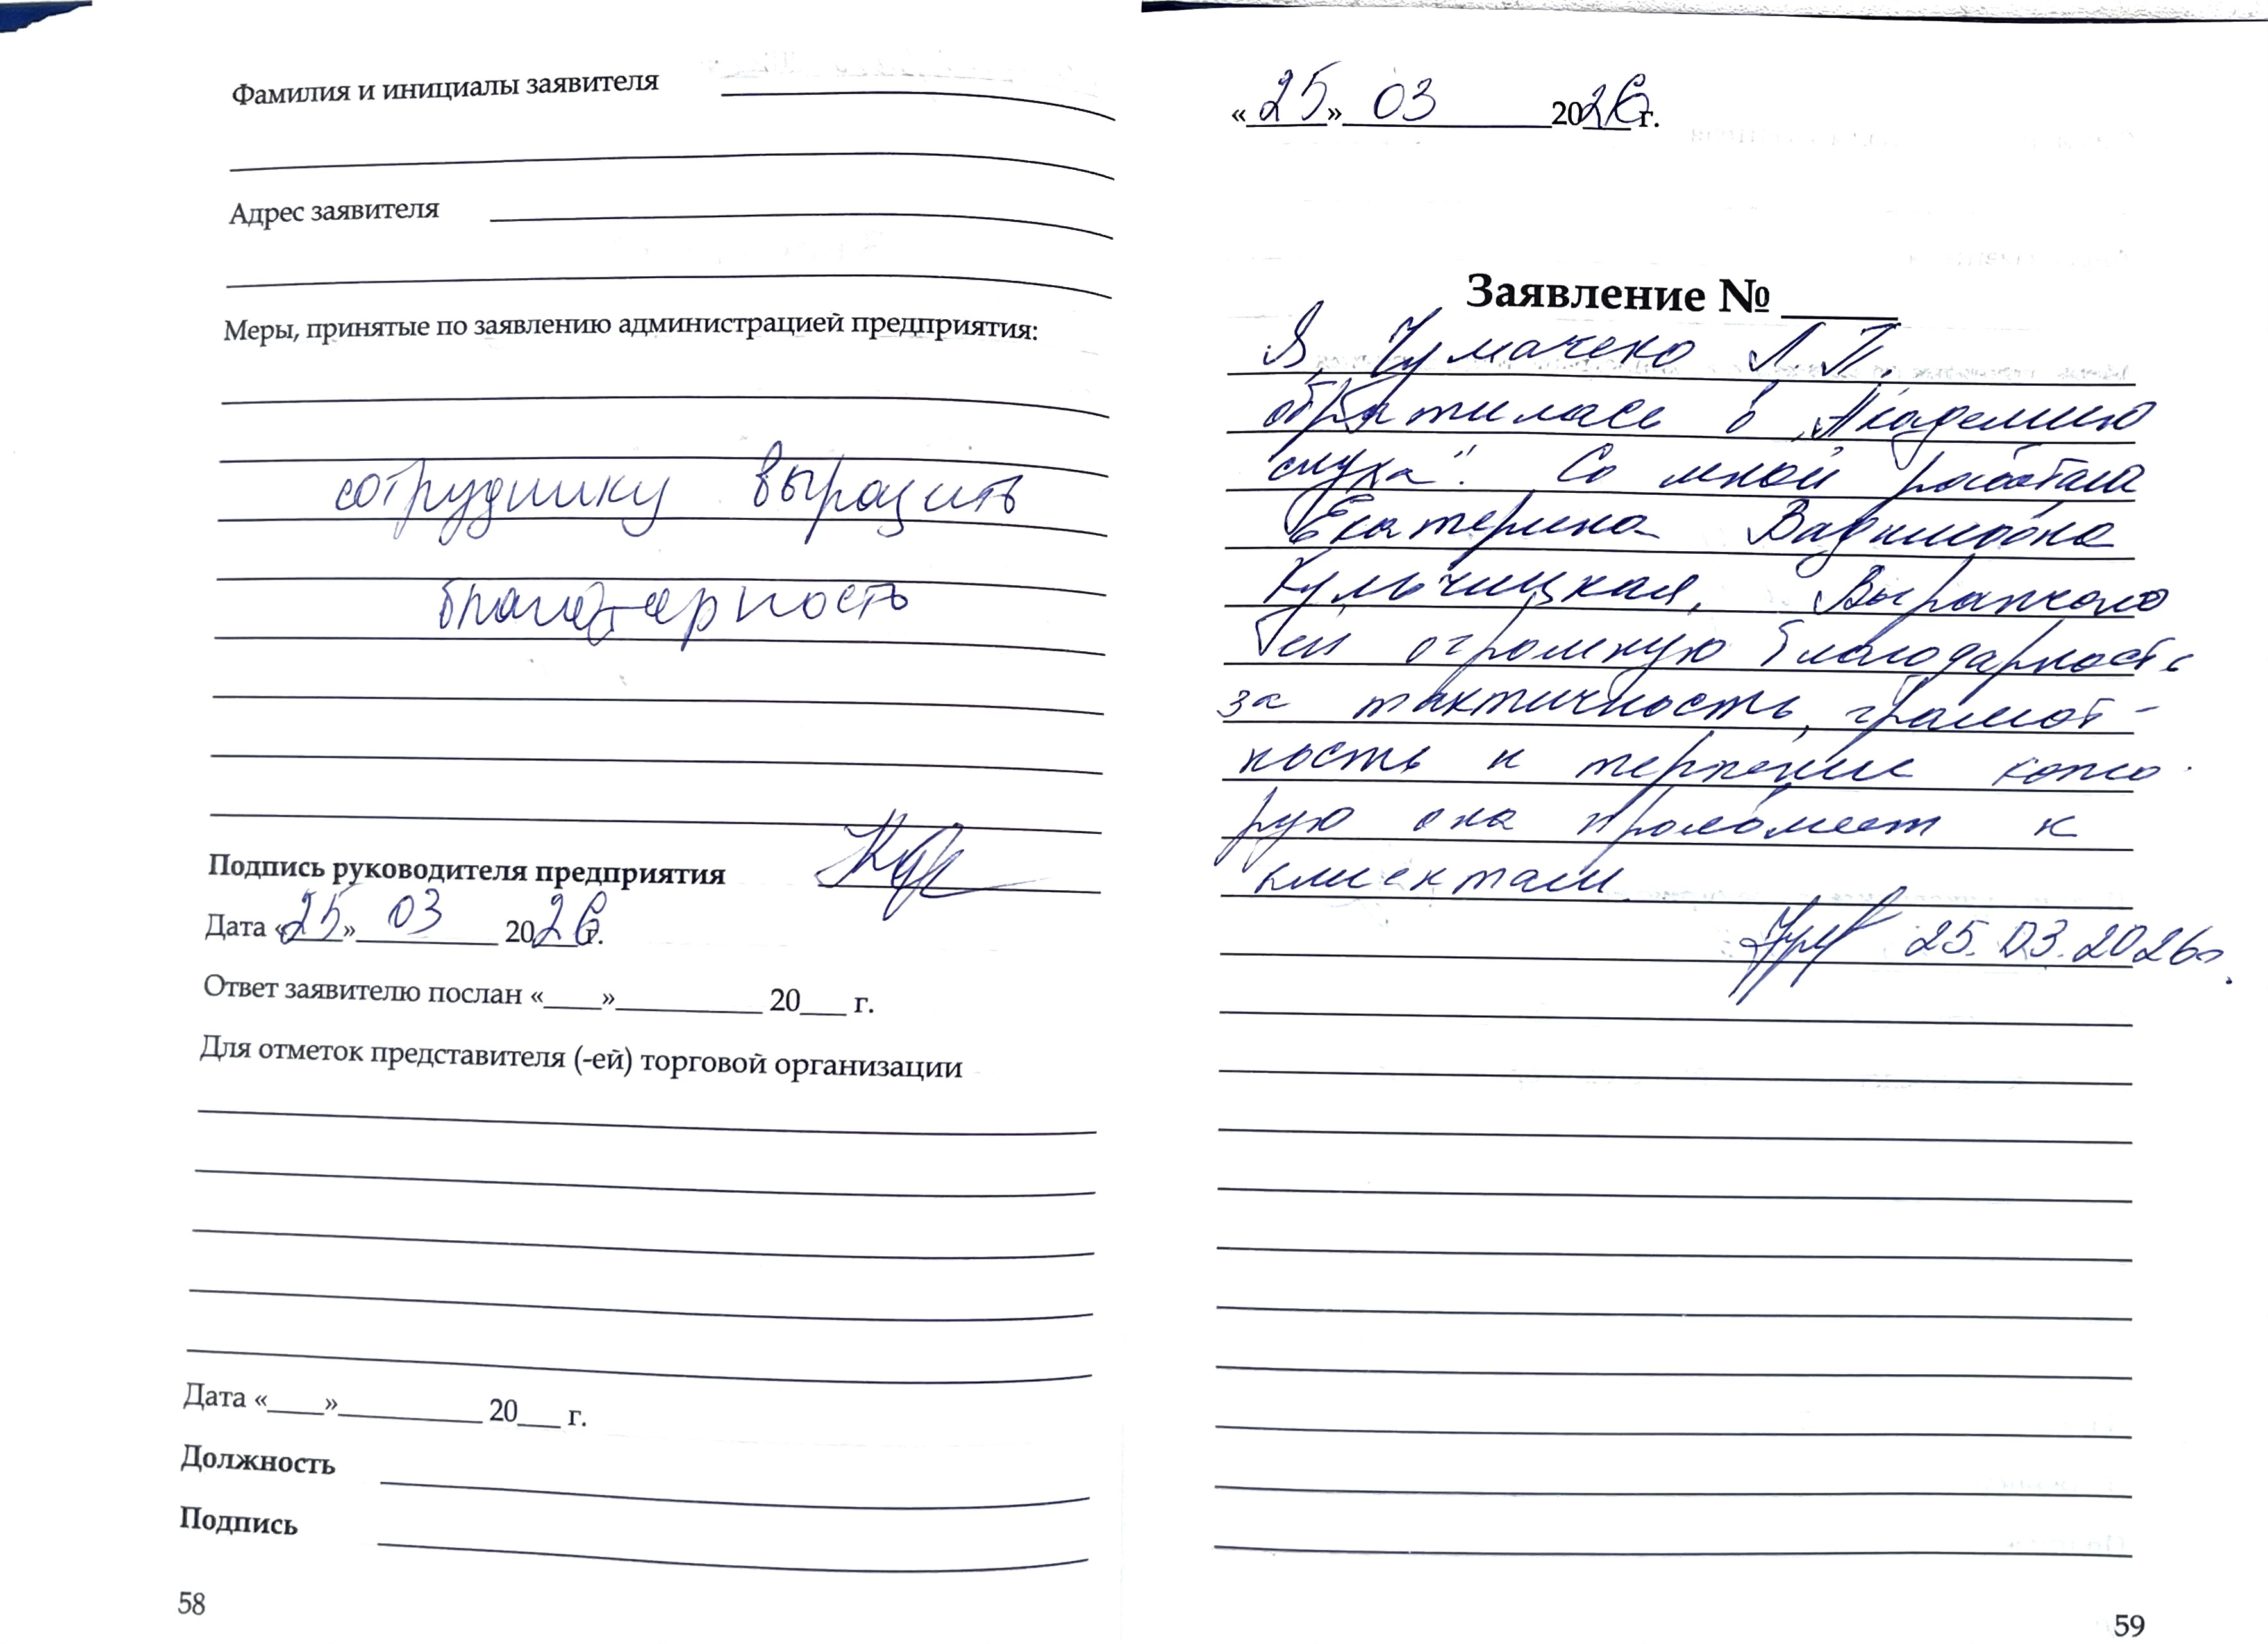 Фамилия и инициалы заявителя
Адрес заявителя
Меры, принятые по заявлению администрацией предприятия:
сотруднику выразить
благодарность
Подпись руководителя предприятия
Дата «25» 03 2026 г.
Ответ заявителю послан «____»__________ 20___ г.
Для отметок представителя (-ей) торговой организации
Дата «____»__________ 20___ г.
Должность
Подпись
58
«25» 03 2026 г.
Заявление № _____
Я, Чумачеко Л. П.
обратилась в „Академию
слуха". Со мной работала
Екатерина Вадимовна
Кульчицкая, Выражаю
ей огромную благодарность
за тактичность, грамот-
ность и терпение кото
рую она проявляет к
клиентам.
25.03.2026г.
59